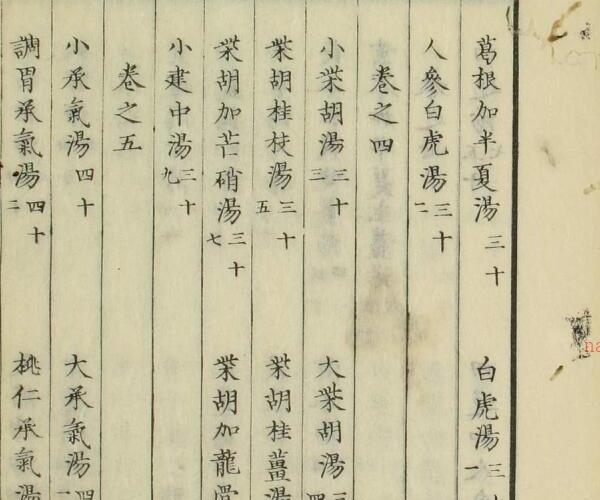 葛根加半夏湯 三十 白虎湯 三十一
人參白虎湯 三十二
卷之四
小柴胡湯 三十三 大柴胡湯 三十四
柴胡桂枝湯 三十五 柴胡桂薑湯
柴胡加芒硝湯 三十七 柴胡加龍骨
小建中湯 三十九
卷之五
小承氣湯 四十 大承氣湯 四十一
調胃承氣湯 四十二 桃仁承氣湯
na